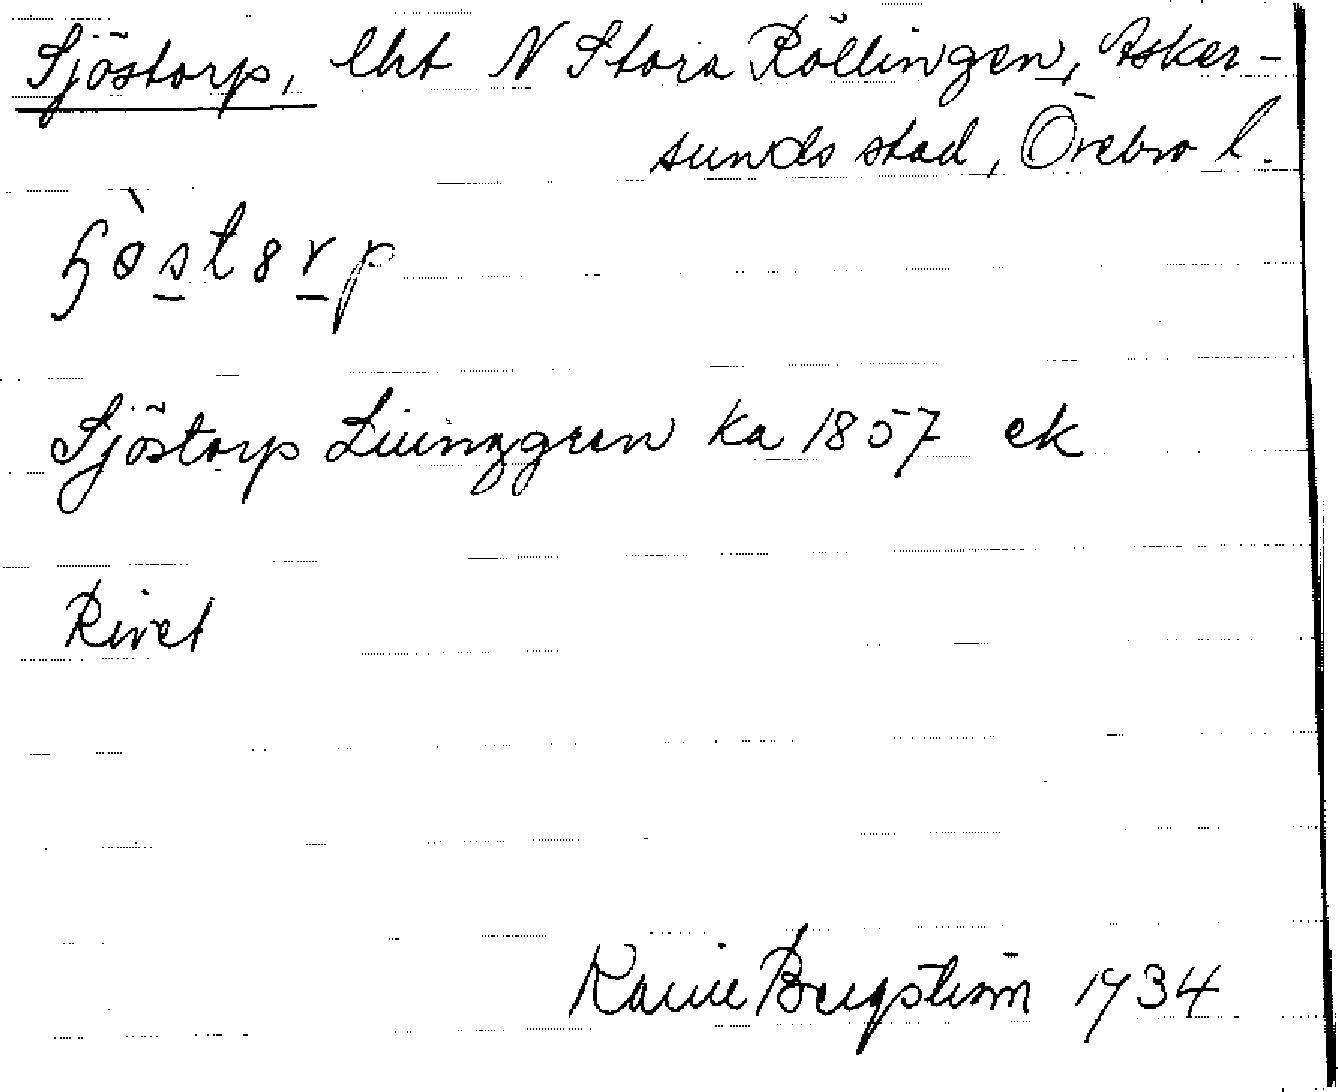 Sjöstorp, lht N Stora Röllingen, Asker-
sunds stad, Örebro l.
ɧòst8rp
Sjöstorp Liunggren ka 1857 ek
Rivet
Karin Bergström 1934